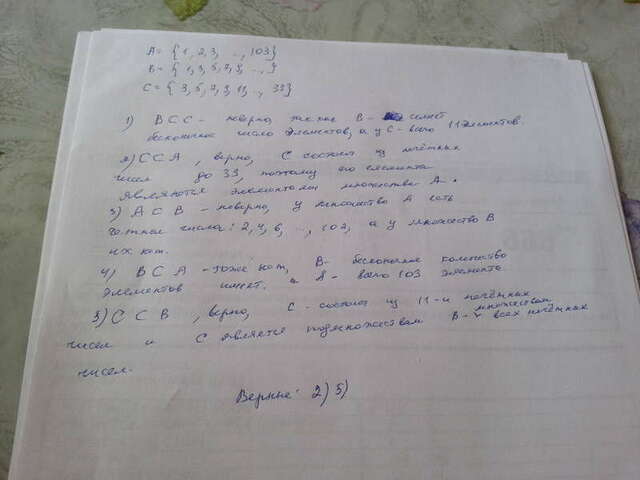 A = {1, 2, 3, ..., 103}
B = {1, 3, 5, 7, 9, ..., }
C = {3, 5, 7, 9, 11, ..., 33}
1) B ⊂ C - неверно, так как B - имеет
бесконечное число элементов, а у C - всего 11 элементов.
2) C ⊂ A, верно, C состоит из нечётных
чисел до 33, поэтому его элемента
являются элементами множества A.
3) A ⊂ B - неверно, у множества A есть
четные числа: 2, 4, 6, ..., 102, а у множества B
их нет.
4) B ⊂ A - тоже нет, B - бесконечное количество
элементов имеет. а A - всего 103 элемента.
5) C ⊂ B, верно, C - состоит из 11-и нечётных
чисел и C является подмножеством B - множеством всех нечётных
чисел.
Верные: 2) 5)